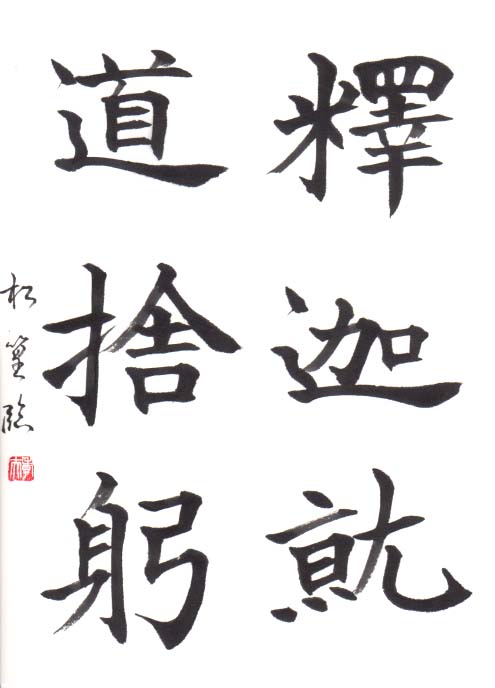 釋迦就
道捨躬
松篁臨